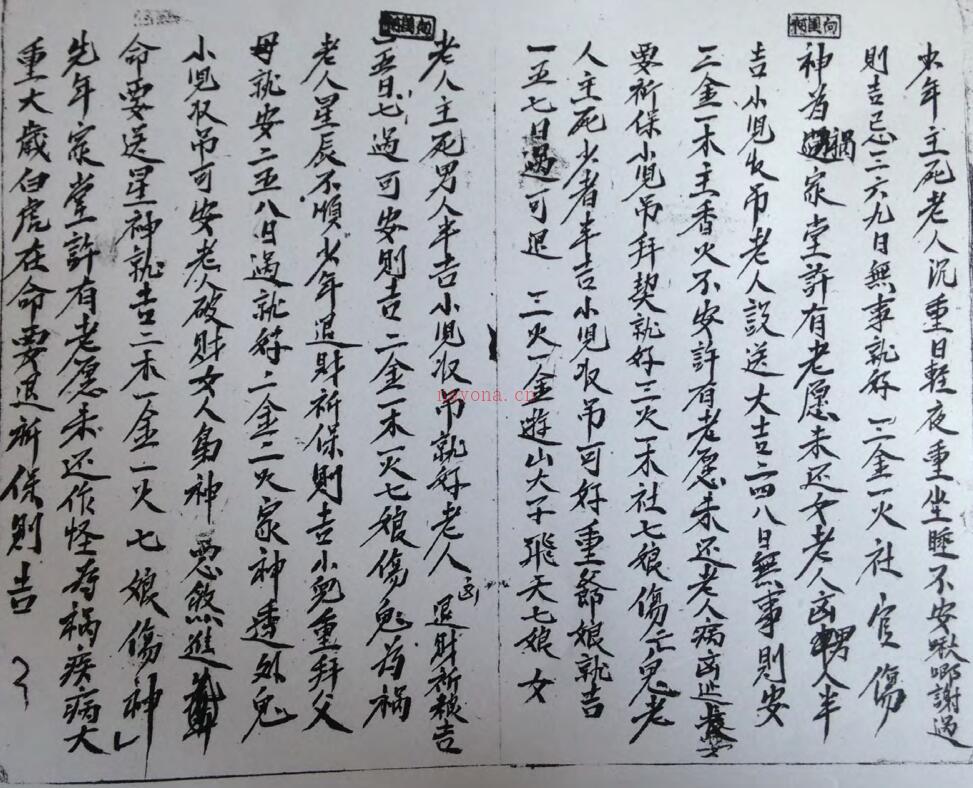 虫年主死老人沉重日輕夜重坐睡不安啾唧謝過
則吉忌二六九日無事就好 二金一火社官傷
神为禍家堂許有老愿未还女老人凶男人半
吉小児收吊老人說送大吉二四八日無事則安
二金一木主香火不安許有老愿未还老人病凶
要祈保小児吊拜契就好三火一木社七娘傷亡鬼老
人主死少者半吉小児收吊可好重爺娘就吉
一五七日過可退 二火一金遊山大子飛天七娘女
老人主死男人半吉小児收吊就好老人凶退財祈禳吉
五日七過可安則吉二金一木一火七娘傷鬼为禍
老人星辰不順少年退財祈保則吉小兒重拜父
母就安二五八日過就好二金二火家神透外鬼
小児收吊可安老人破財女人梟神惡煞進
命要送星神就吉二木一金一火七娘傷神
先年家堂許有老愿未还作怪为祸疾病大
重大歲白虎在命要退祈保則吉
向国柯
向国柯
nayona.cn